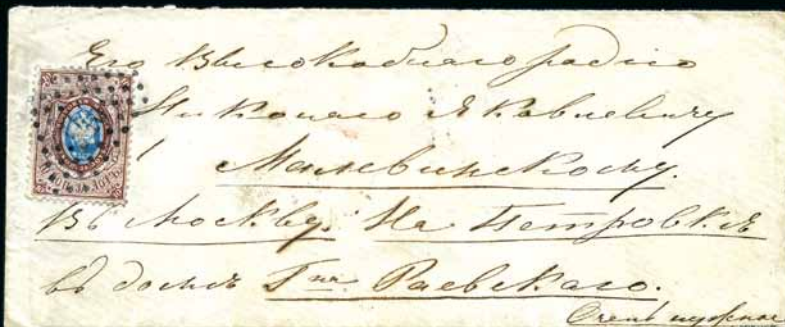 Его Высокоблагородію
Николаю Яковлевичу
Малевинскому.
Въ Москву. На Петровкѣ
въ домѣ Гна Раевскаго.
Очень нужное
10 КОП. ЗА ЛОТЪ